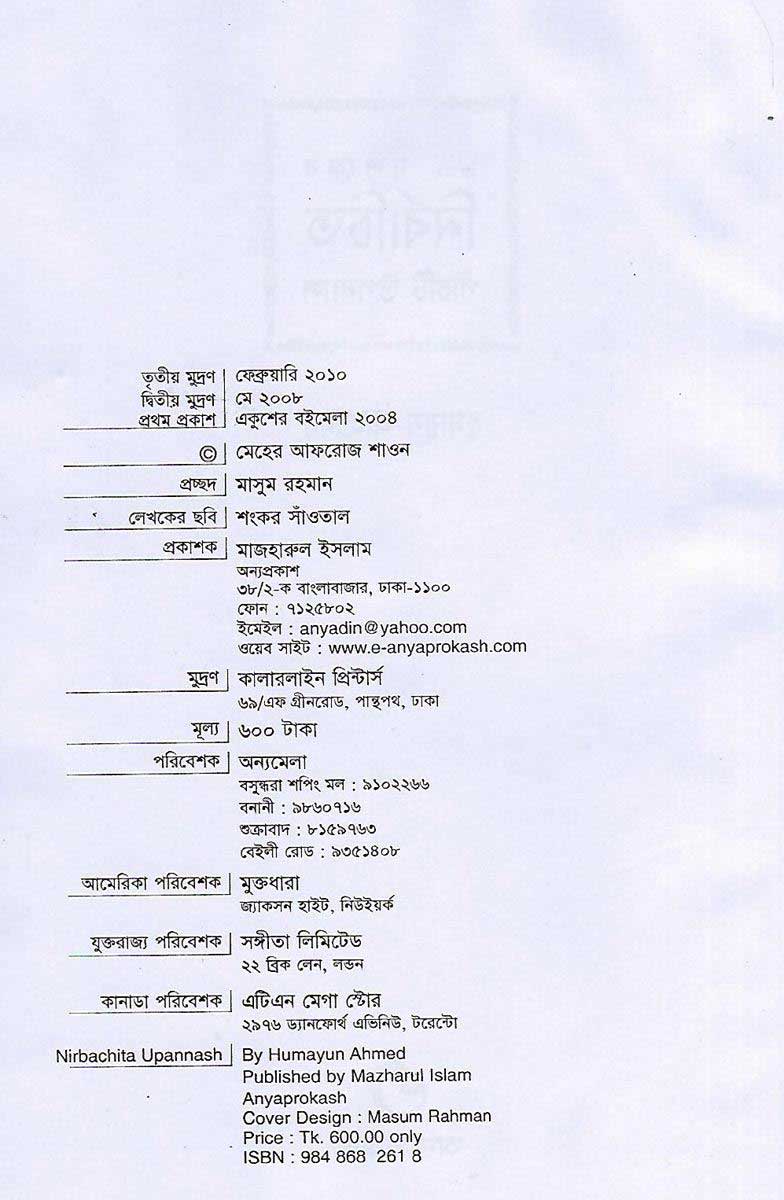 তৃতীয় মুদ্রণ ফেব্রুয়ারি ২০১০
দ্বিতীয় মুদ্রণ মে ২০০৮
প্রথম প্রকাশ একুশের বইমেলা ২০০৪
© মেহের আফরোজ শাওন
প্রচ্ছদ মাসুম রহমান
লেখকের ছবি শংকর সাঁওতাল
প্রকাশক মাজহারুল ইসলাম
অন্যপ্রকাশ
৩৮/২-ক বাংলাবাজার, ঢাকা-১১০০
ফোন : ৭১২৫৮০২
ইমেইল : anyadin@yahoo.com
ওয়েব সাইট : www.e-anyaprokash.com
মুদ্রণ কালারলাইন প্রিন্টার্স
৬৯/এফ গ্রীনরোড, পান্থপথ, ঢাকা
মূল্য ৬০০ টাকা
পরিবেশক অন্যমেলা
বসুন্ধরা শপিং মল : ৯১০২২৬৬
বনানী : ৯৮৬০৭১৬
শুক্রাবাদ : ৮১৫৯৭৬৩
বেইলী রোড : ৯৩৫১৪০৮
আমেরিকা পরিবেশক মুক্তধারা
জ্যাকসন হাইট, নিউইয়র্ক
যুক্তরাজ্য পরিবেশক সঙ্গীতা লিমিটেড
২২ ব্রিক লেন, লন্ডন
কানাডা পরিবেশক এটিএন মেগা স্টোর
২৯৭৬ ড্যানফোর্থ এভিনিউ, টরেন্টো
Nirbachita Upannash By Humayun Ahmed
Published by Mazharul Islam
Anyaprokash
Cover Design : Masum Rahman
Price : Tk. 600.00 only
ISBN : 984 868 261 8